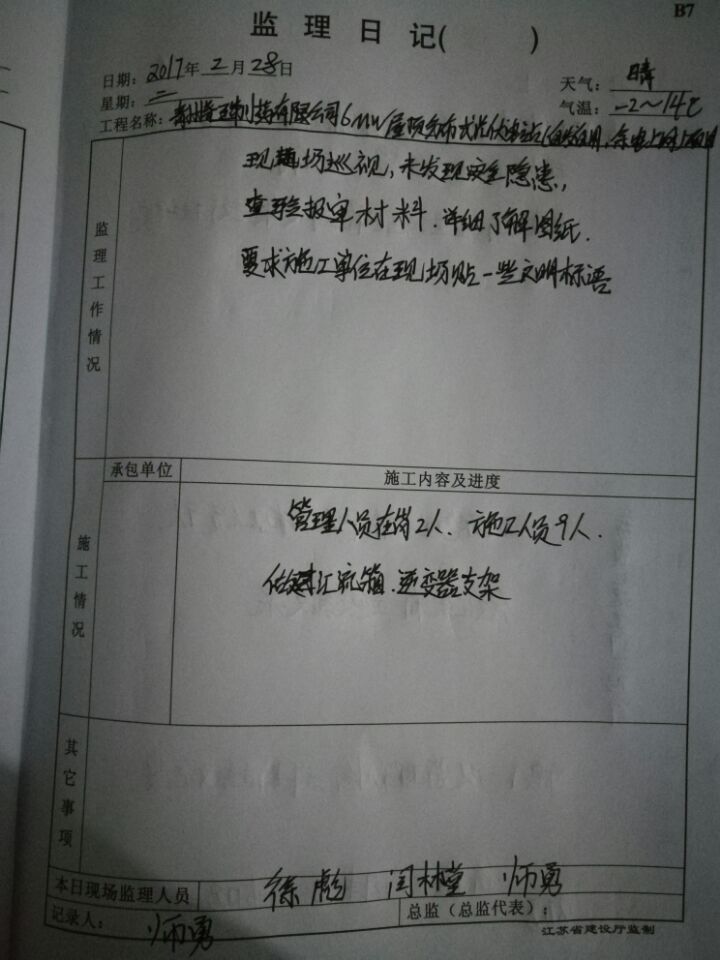 B7
监理日记( )
日期：2017年2月28日
天气：晴
星期：二
气温：-2～14℃
工程名称：制药有限公司6MW屋顶分布式光伏电站(自发自用，余电上网)项目
监理工作情况
现场巡视，未发现安全隐患，
查验报审材料．详细了解图纸．
要求施工单位在现场贴一些文明标语
承包单位
施工内容及进度
施工情况
管理人员在岗2人．施工人员9人．
汇流箱．逆变器支架
其它事项
本日现场监理人员
徐彪 闫林堂 师勇
记录人：师勇
总监（总监代表）：
江苏省建设厅监制